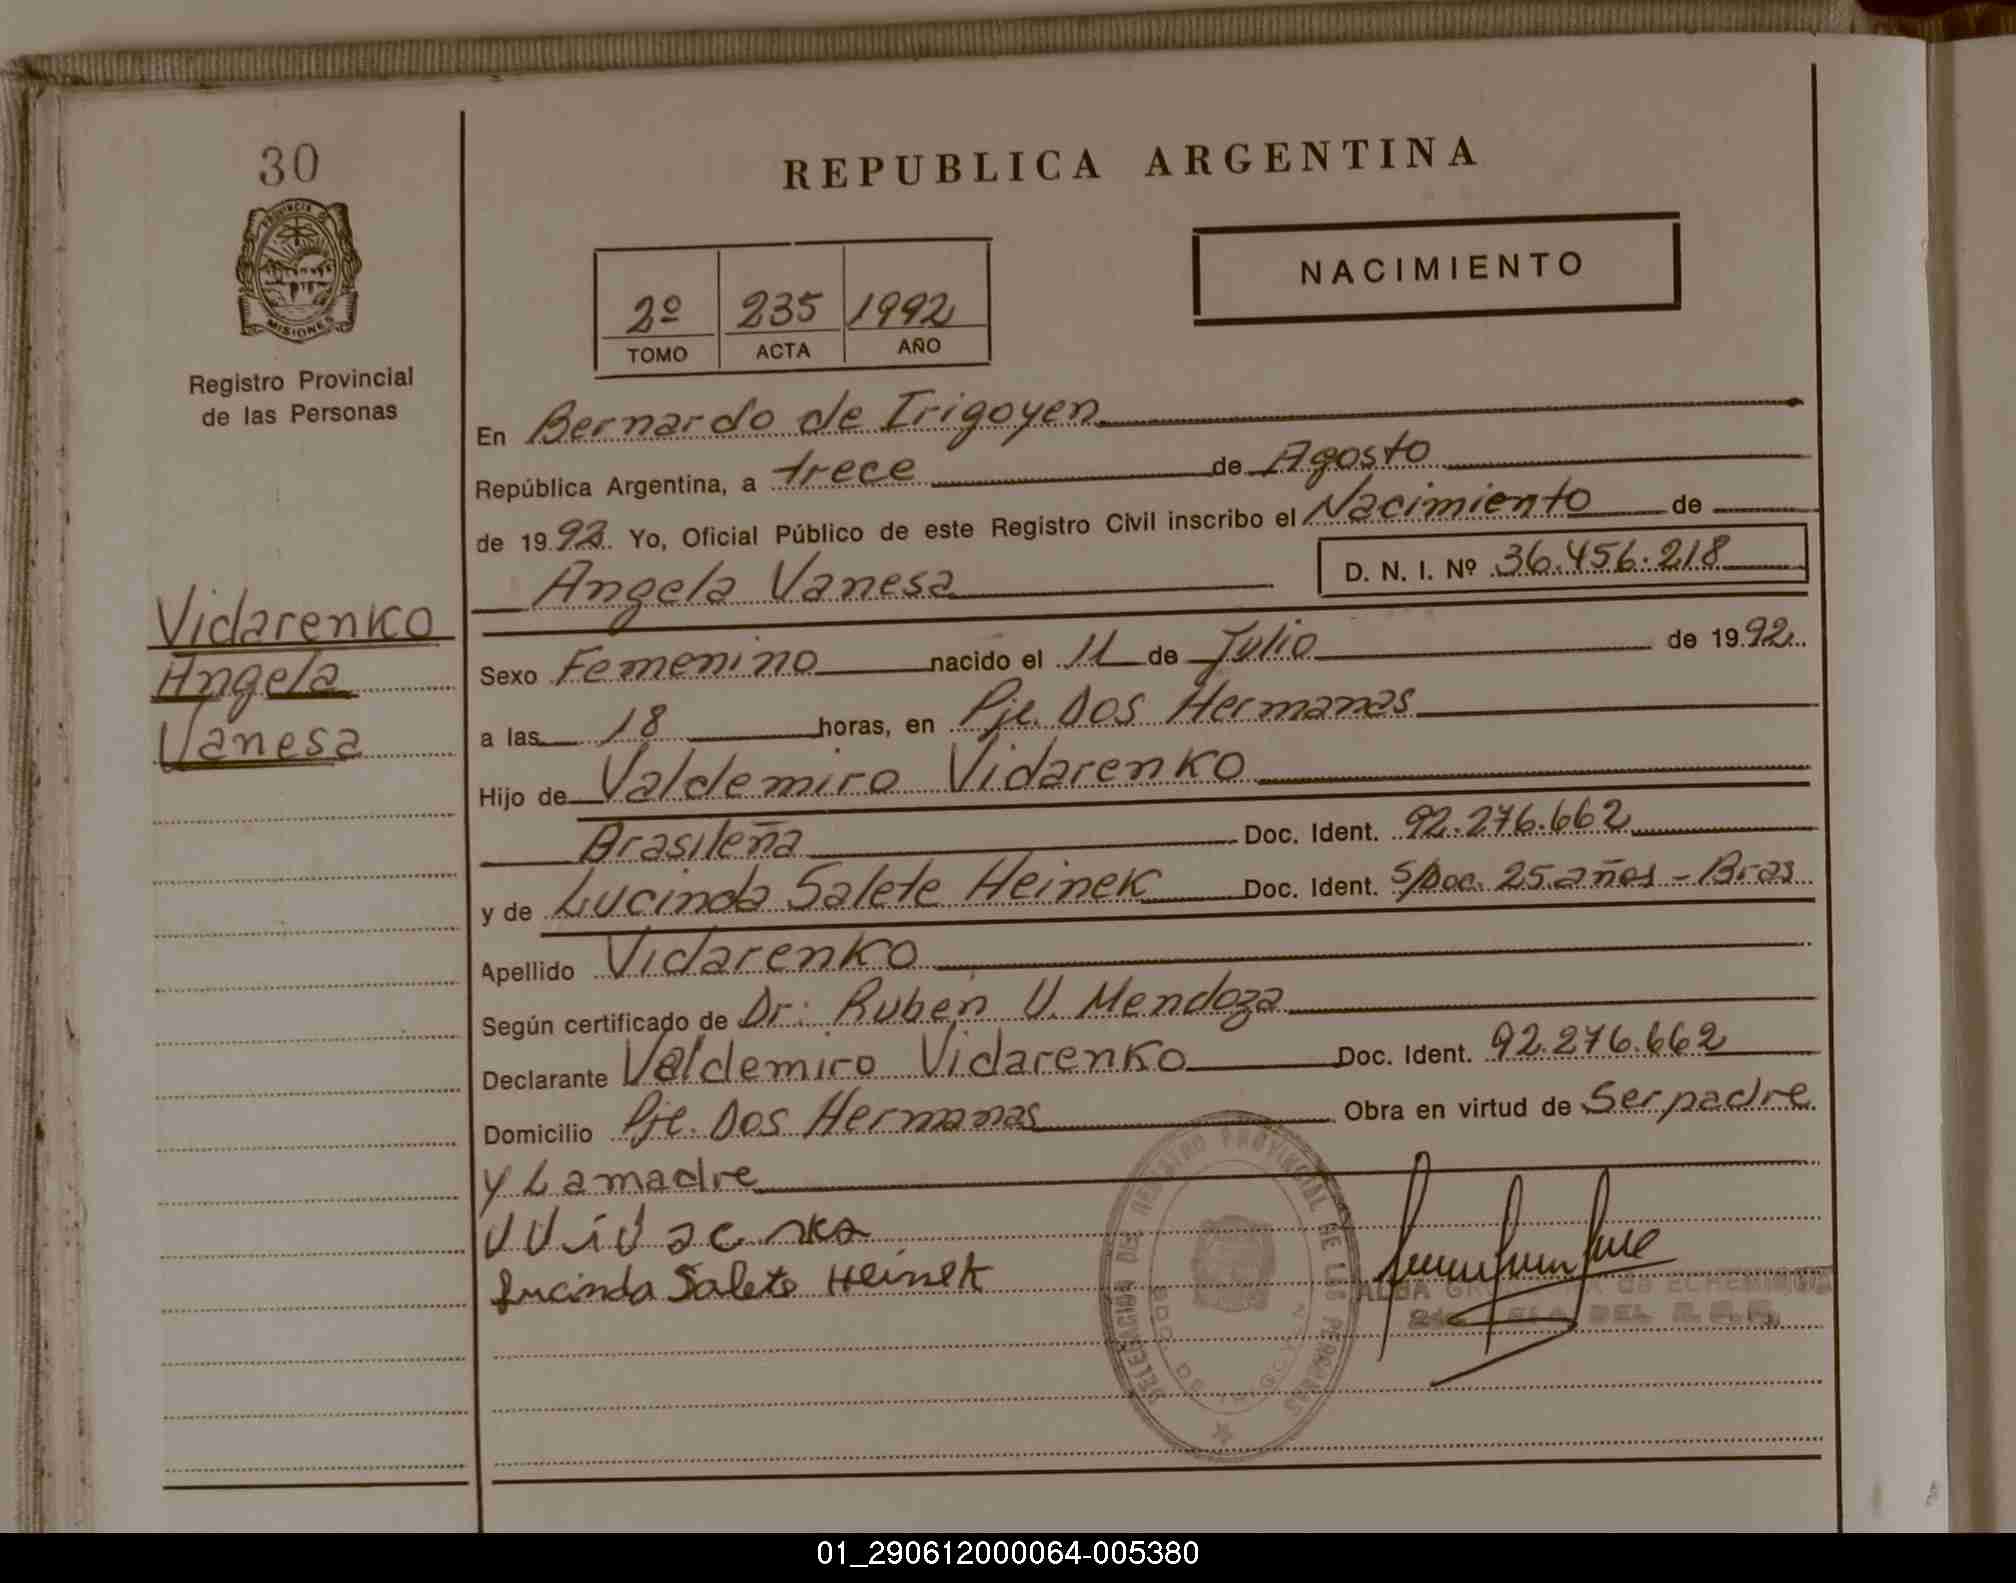 30
PROVINCIA DE
MISIONES
Registro Provincial
de las Personas
Vidarenko
Angela
Vanesa
REPUBLICA ARGENTINA
NACIMIENTO
2º 235 1992
TOMO ACTA AÑO
En Bernardo de Irigoyen
República Argentina, a trece de Agosto
de 1992. Yo, Oficial Público de este Registro Civil inscribo el Nacimiento de
Angela Vanesa D. N. I. Nº 36.456.218
Sexo Femenino nacido el 11 de Julio de 1992
a las 18 horas, en Pje. Dos Hermanas
Hijo de Valdemiro Vidarenko
Brasileña Doc. Ident. 92.276.662
y de Lucinda Salete Heinek Doc. Ident. S/Doc. 25 años - Bras
Apellido Vidarenko
Según certificado de Dr: Ruben V. Mendoza
Declarante Valdemiro Vidarenko Doc. Ident. 92.276.662
Domicilio Pje. Dos Hermanas Obra en virtud de Ser padre
y La madre
Lucinda Salete Heinek
DELEGACION DEL REGISTRO PROVINCIAL DE LAS PERSONAS
BDO. DE IRIGOYEN
ALBA DE
DEL R.P.P.
01_290612000064-005380